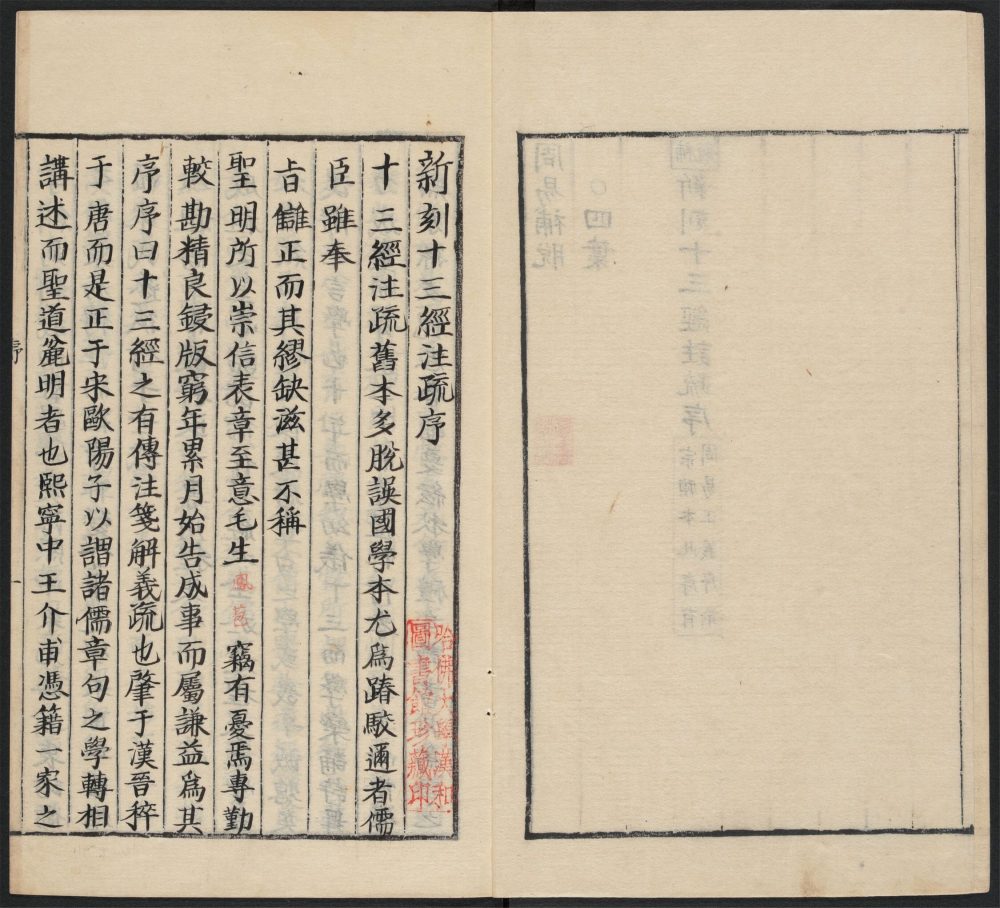 新刻十三經注疏序
十三經注疏舊本多脫誤國學本尤爲踳駮邇者儒
臣雖奉
旨讎正而其繆缺滋甚不稱
聖明所以崇信表章至意毛生鳳苞竊有憂焉專勤
較勘精良鋟版窮年累月始告成事而屬謙益爲其
序序曰十三經之有傳注箋解義疏也肇于漢晉稡
于唐而是正于宋歐陽子以謂諸儒章句之學轉相
講述而聖道麄明者也熙寧中王介甫憑藉一家之
序
一
哈佛大學漢和
圖書館珍藏印